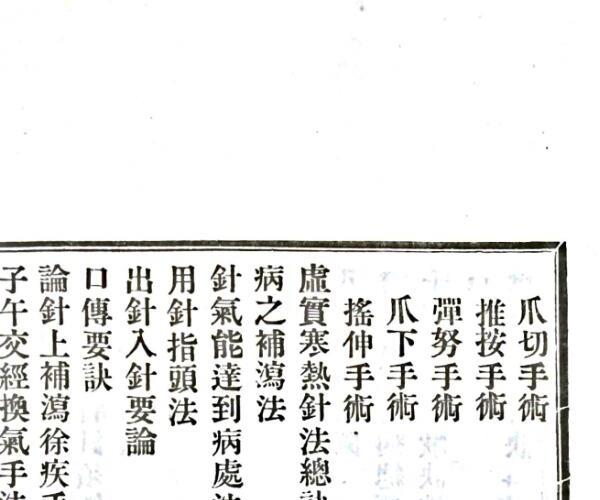 爪切手術
推按手術
彈努手術
爪下手術
搖伸手術
虛實寒熱針法總訣
病之補瀉法
針氣能達到病處法
用針指頭法
出針入針要論
口傳要訣
論針上補瀉徐疾手
子午交經換氣手法